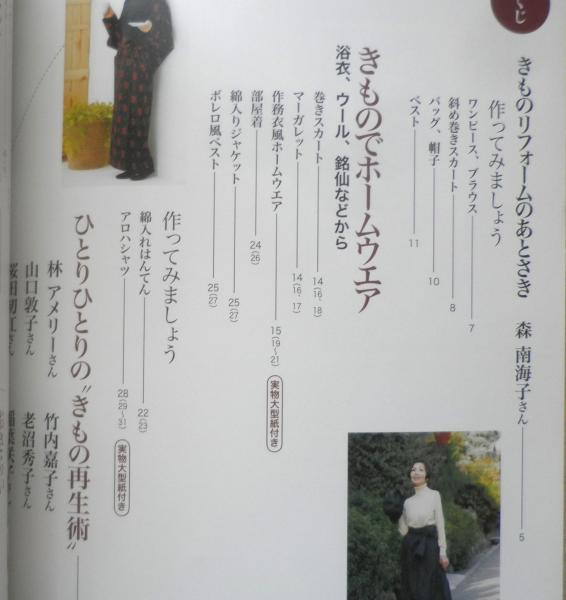 くじ
きものリフォームのあとさき 森 南海子さん 5
作ってみましょう
ワンピース、ブラウス 7
斜め巻きスカート 8
バッグ、帽子 10
ベスト 11
きものでホームウエア
浴衣、ウール、銘仙などから
巻きスカート 14(16、18)
マーガレット 14(16、17)
作務衣風ホームウエア 15(19~21) 実物大型紙付き
部屋着 24(26)
綿入りジャケット 25(27)
ボレロ風ベスト 25(27)
作ってみましょう
綿入れはんてん 22(23)
アロハシャツ 28(29~31) 実物大型紙付き
ひとりひとりの“きもの再生術”
林 アメリーさん 竹内嘉子さん
山口敦子さん 老沼秀子さん